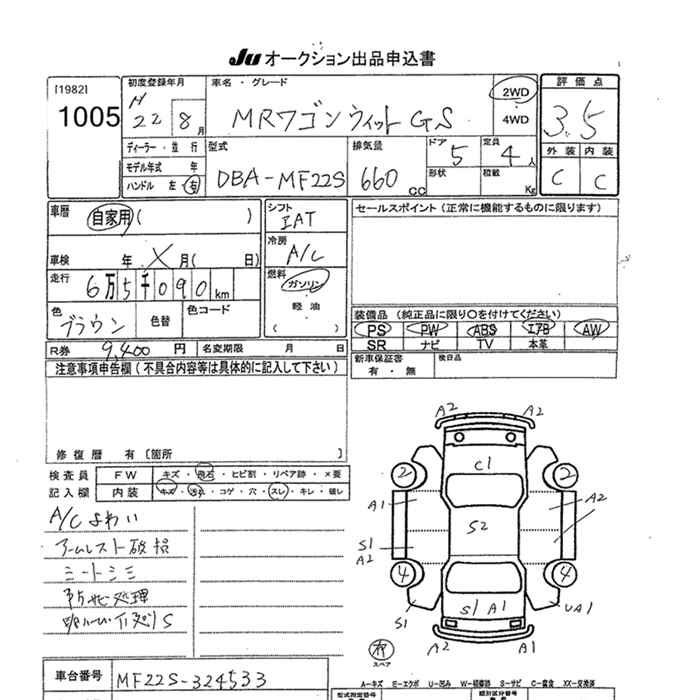 JU オークション出品申込書
[1982]
1005
初度登録年月
H
22 8 月
車名・グレード
MRワゴン ウィット GS
2WD
4WD
評価点
3.5
外装 内装
C C
ディーラー・並行
モデル年式 年
ハンドル 左 右
型式
DBA-MF22S
排気量
660 CC
ドア
5
形状
定員
4 人
積載
Kg
車歴
自家用 ( )
シフト
IAT
冷房
A/C
燃料
ガソリン
軽油
( )
車検 年 X 月( 日)
走行
6万5千090 km
色
ブラウン
色替
色コード
R券 9,400 円 名変期限 月 日
セールスポイント (正常に機能するものに限ります)
装備品 (純正品に限り○を付けてください)
PS PW ABS エアB AW
SR ナビ TV 本革
新車保証書
有・無
後日品
注意事項申告欄 (不具合内容等は具体的に記入して下さい)
修復歴 有 [箇所 ]
検査員
記入欄
FW キズ・飛石・ヒビ割・リペア跡・×要
内装 キズ・汚れ・コゲ・穴・スレ・キレ・破レ
A/Cよわい
アームレスト破損
シートシミ
防サビ処理
A2 A2
C1
2 2
A1 A2
S2
S1
A2
4 4
S1 S1 A1 UA1
A2 A2
スペア
A-キズ E-エクボ U-凹み W-補修跡 S-サビ C-腐食 XX-交換済
車台番号 MF22S-324533
型式指定番号
類別区分番号